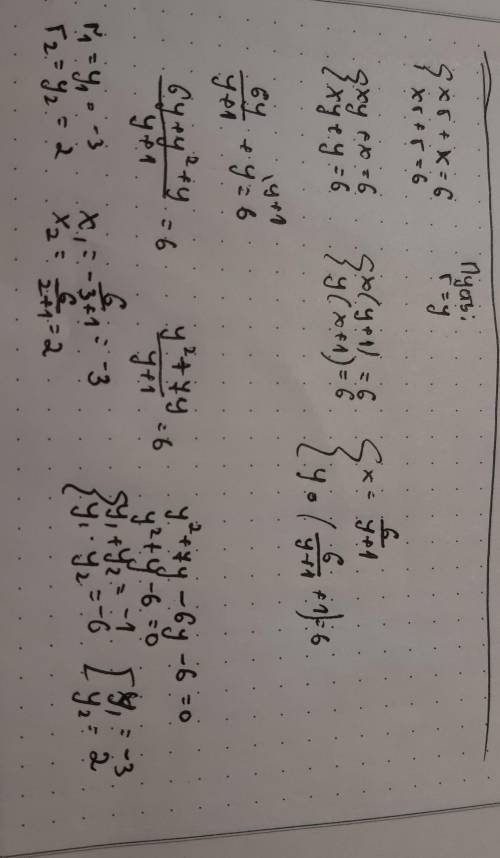 { xr + x = 6
{ xr + r = 6
Пусть r = y
{ xy + x = 6
{ xy + y = 6
{ x(y+1) = 6
{ y(x+1) = 6
{ x = 6/(y+1)
{ y · (6/(y+1) + 1) = 6
6y/(y+1) + y = 6 ^(y+1)
(6y + y² + y)/(y+1) = 6
(y² + 7y)/(y+1) = 6
y² + 7y - 6y - 6 = 0
y² + y - 6 = 0
{ y₁ + y₂ = -1
{ y₁ · y₂ = -6
[ y₁ = -3
[ y₂ = 2
r₁ = y₁ = -3
r₂ = y₂ = 2
x₁ = 6/(-3+1) = -3
x₂ = 6/(2+1) = 2